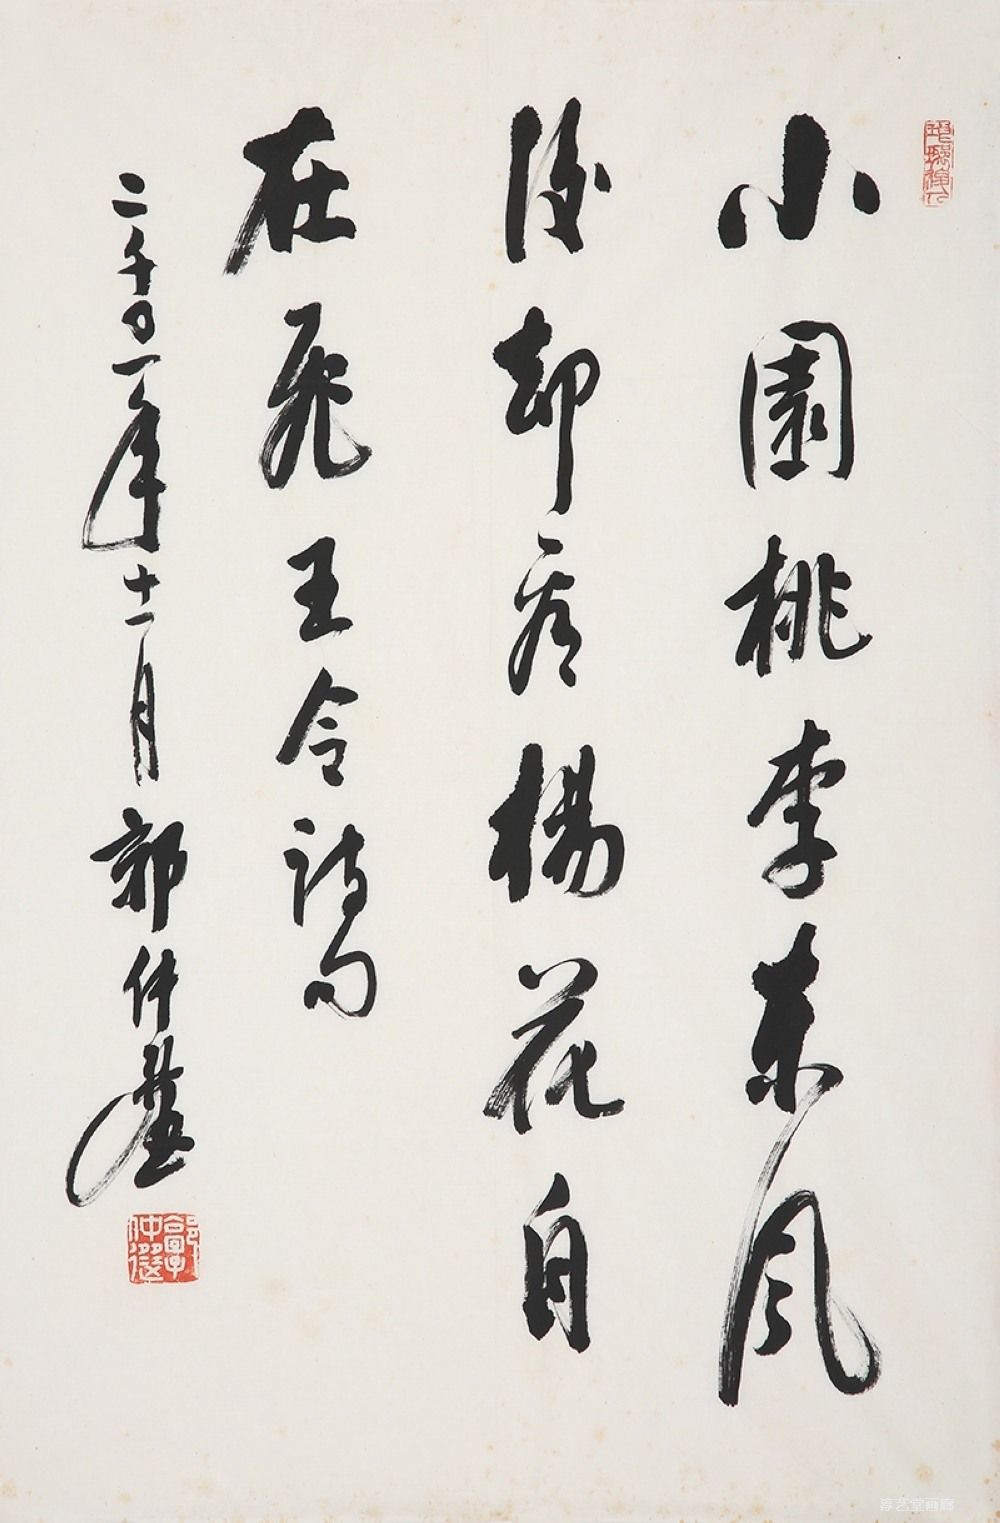 小園桃李東風
後却看楊花自
在飛王令詩句
二千〇一年十二月郭仲選
郭仲選
淳艺堂画廊